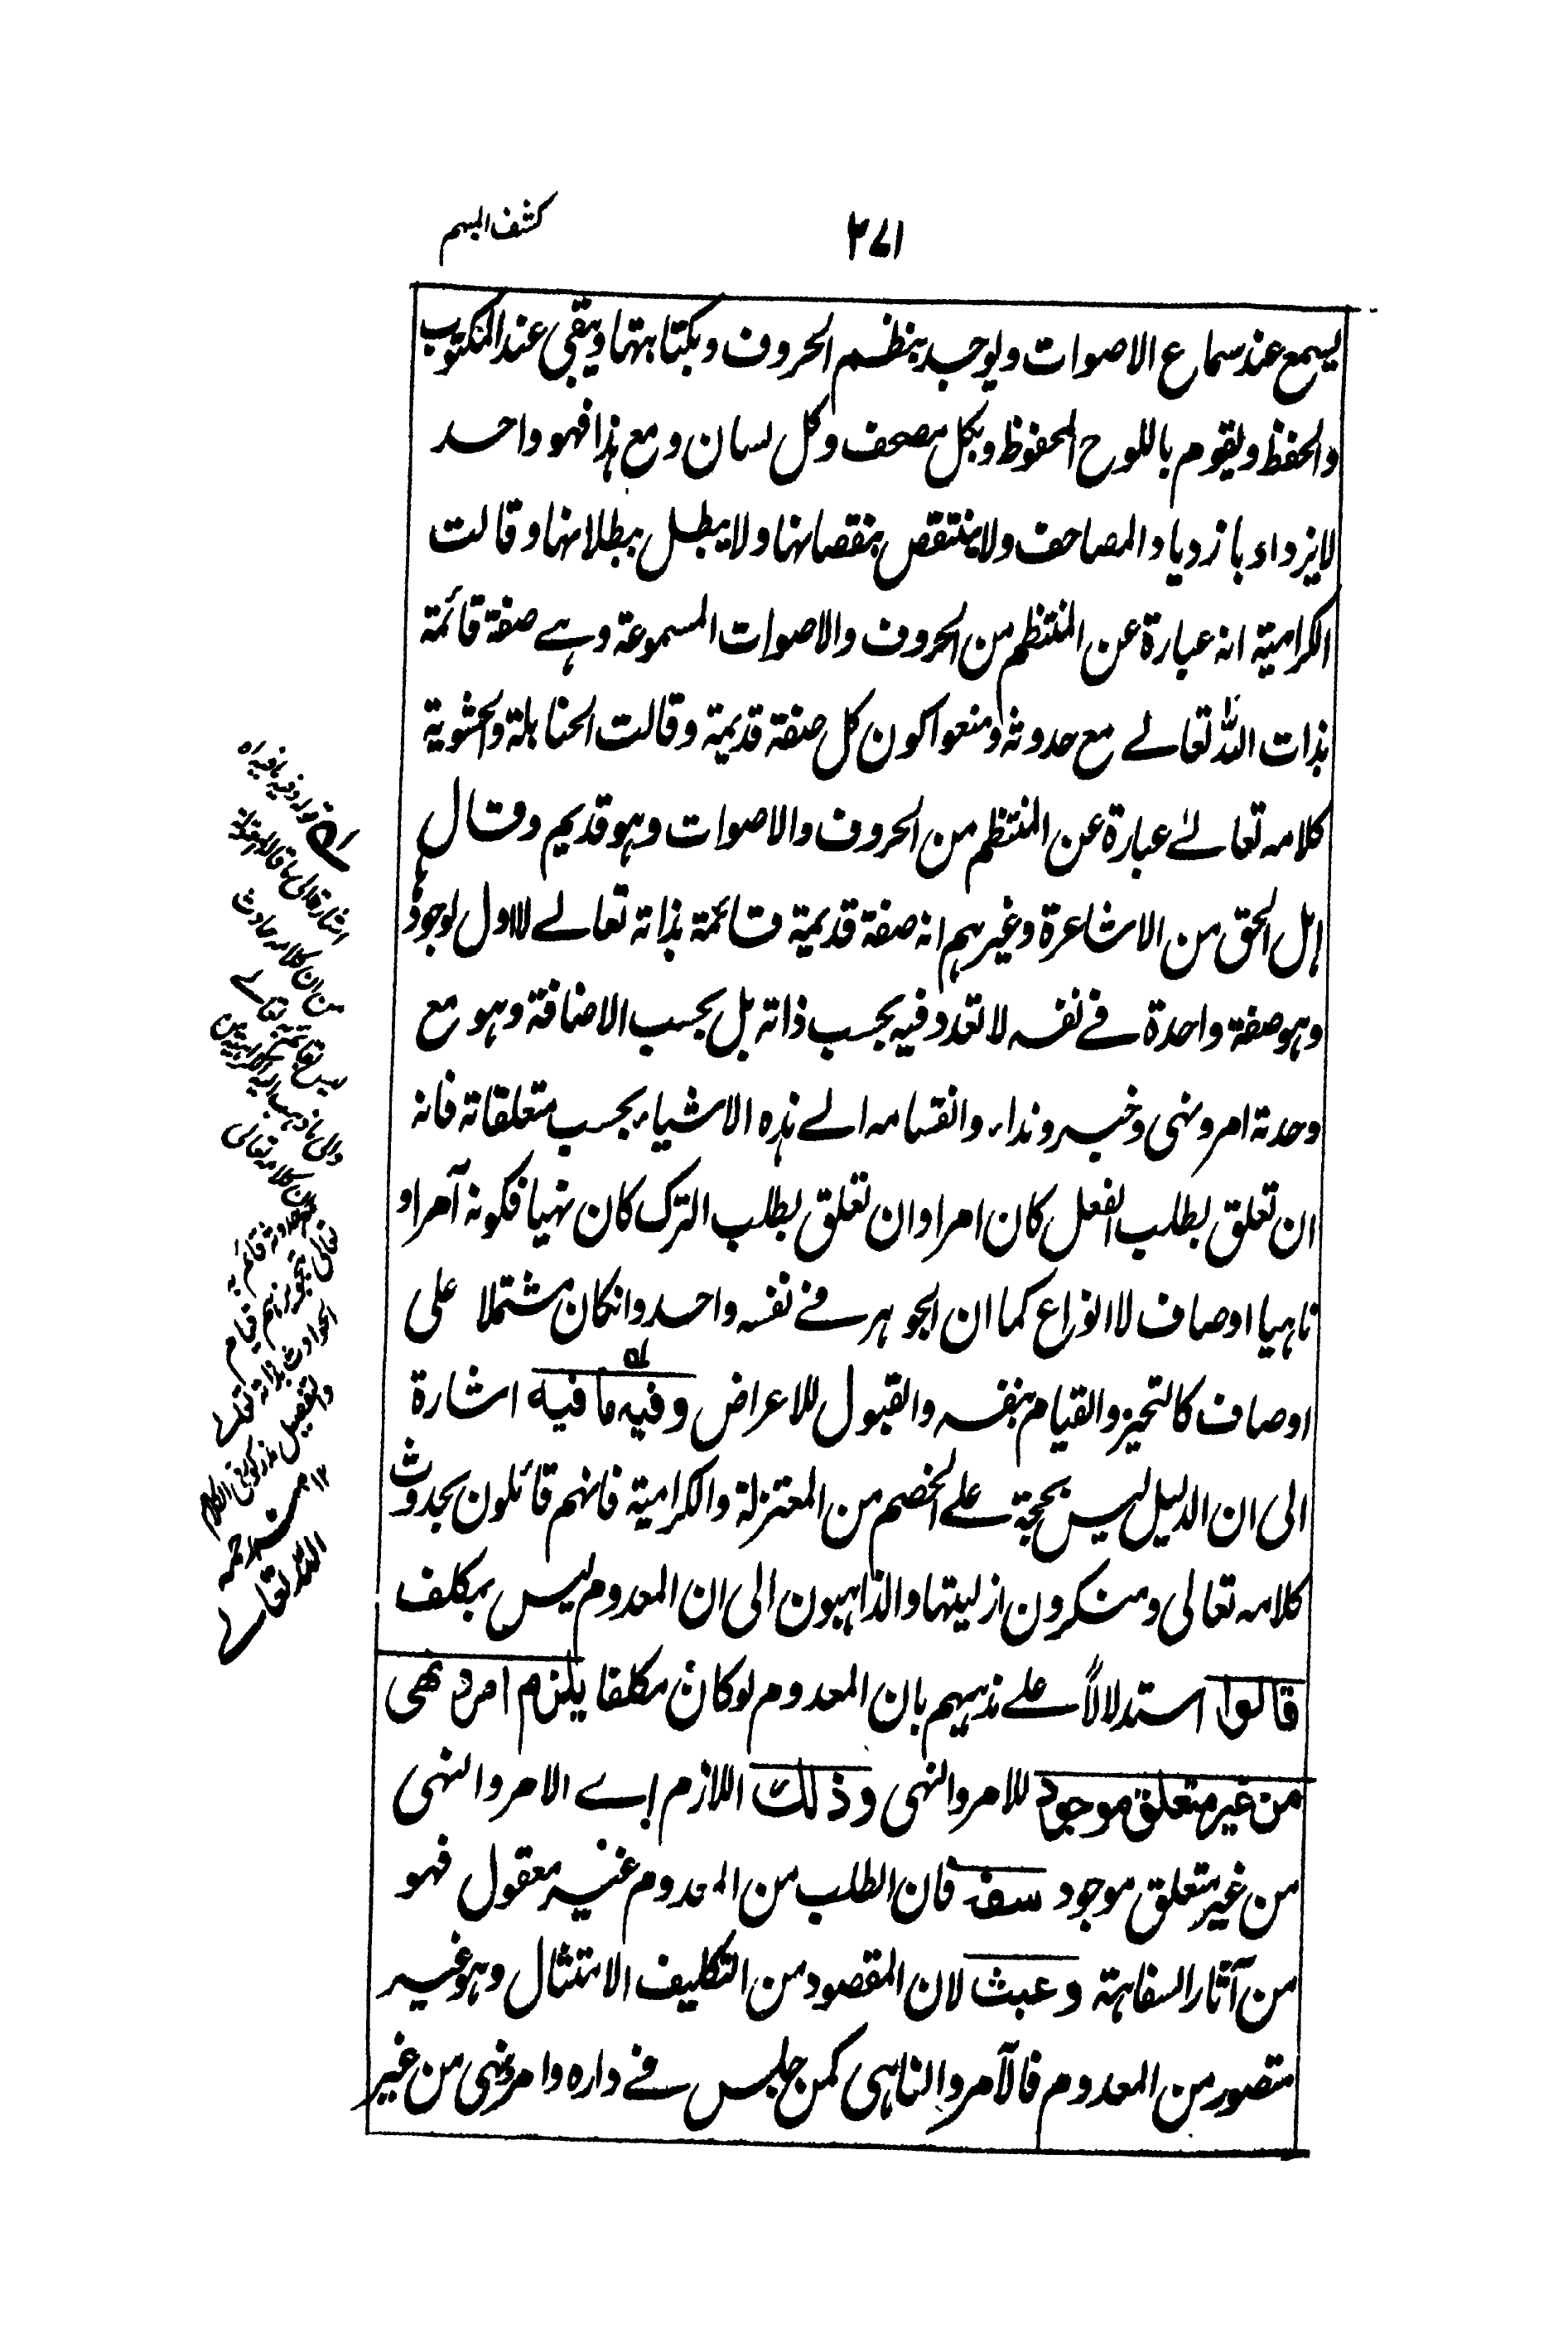 ٢٧١
كشف المبهم
يسمع عند سماع الاصوات ويوجد بنظم الحروف وبكتابتها ويبقى عند المكتوب
والحفظ ويقوم باللوح المحفوظ وبكل مصحف وكل لسان ومع هذا فهو واحد
لا يزداد بازدياد المصاحف ولا ينتقص بنقصانها ولا يبطل ببطلانها وقالت
الكرامية انه عبارة عن المنتظم من الحروف والاصوات المسموعة وهے صفة قائمة
بذات الله تعالے مع حدوثه ومنعوا كون كل صفة قديمة وقالت الحنابلة والحشوية
كلامه تعالےٰ عبارة عن المنتظم من الحروف والاصوات وهو قديم وقال
اهل الحق من الاشاعرة وغيرهم انه صفة قديمة قائمة بذاته تعالے للاول لوجودها
وهو صفة واحدة فے نفسه لا تعدد فيه بحسب ذاته بل بحسب الاضافة وهو مع
وحدته امر ونهى وخبر ونداء وانقسامه الے هذه الاشياء بحسب متعلقاته فانه
ان تعلق بطلب الفعل كان امرا وان تعلق بطلب الترك كان نهيا فكونه آمرا و
ناهيا اوصاف لا انواع كما ان الجوهر فے نفسه واحد وانكان مشتملا على
اوصاف كالتحيز والقيام بنفسه والقبول للاعراض وفيه ما فيه اشارة
الى ان الدليل ليس بحجة علے الخصم من المعتزلة والكرامية فانهم قائلون بحدوث
كلامه تعالى ومنكرون ازليتها والذاهبون الى ان المعدوم ليس بمكلف
قالوا استدلالاً علے مذهبهم بان المعدوم لوكان مكلفا يلزم امر ونهى
من غير متعلق موجود للامر والنهى وذلك اللازم اے الامر والنهى
من غير متعلق موجود سفه فان الطلب من المعدوم غير معقول فهو
من آثار السفاهة وعبث لان المقصود من التكليف الامتثال وهو غير
متصور من المعدوم فالآمر والناهى كمن جلس فے داره وامر ونهى من غير
قوله وفيه ما فيه اه
اشارة الى ما قاله المعتزلة
من ان كلامه حادث
والى ما ذهب اليه الكرامية من
ان كلامه تعالى
مع حدوثه قائم به
تعالى لتجويزهم قيام
الحوادث بذاته تعالے
والتفصيل مذكور فى الكلام
١٢ منه رحمه
الله تعالے